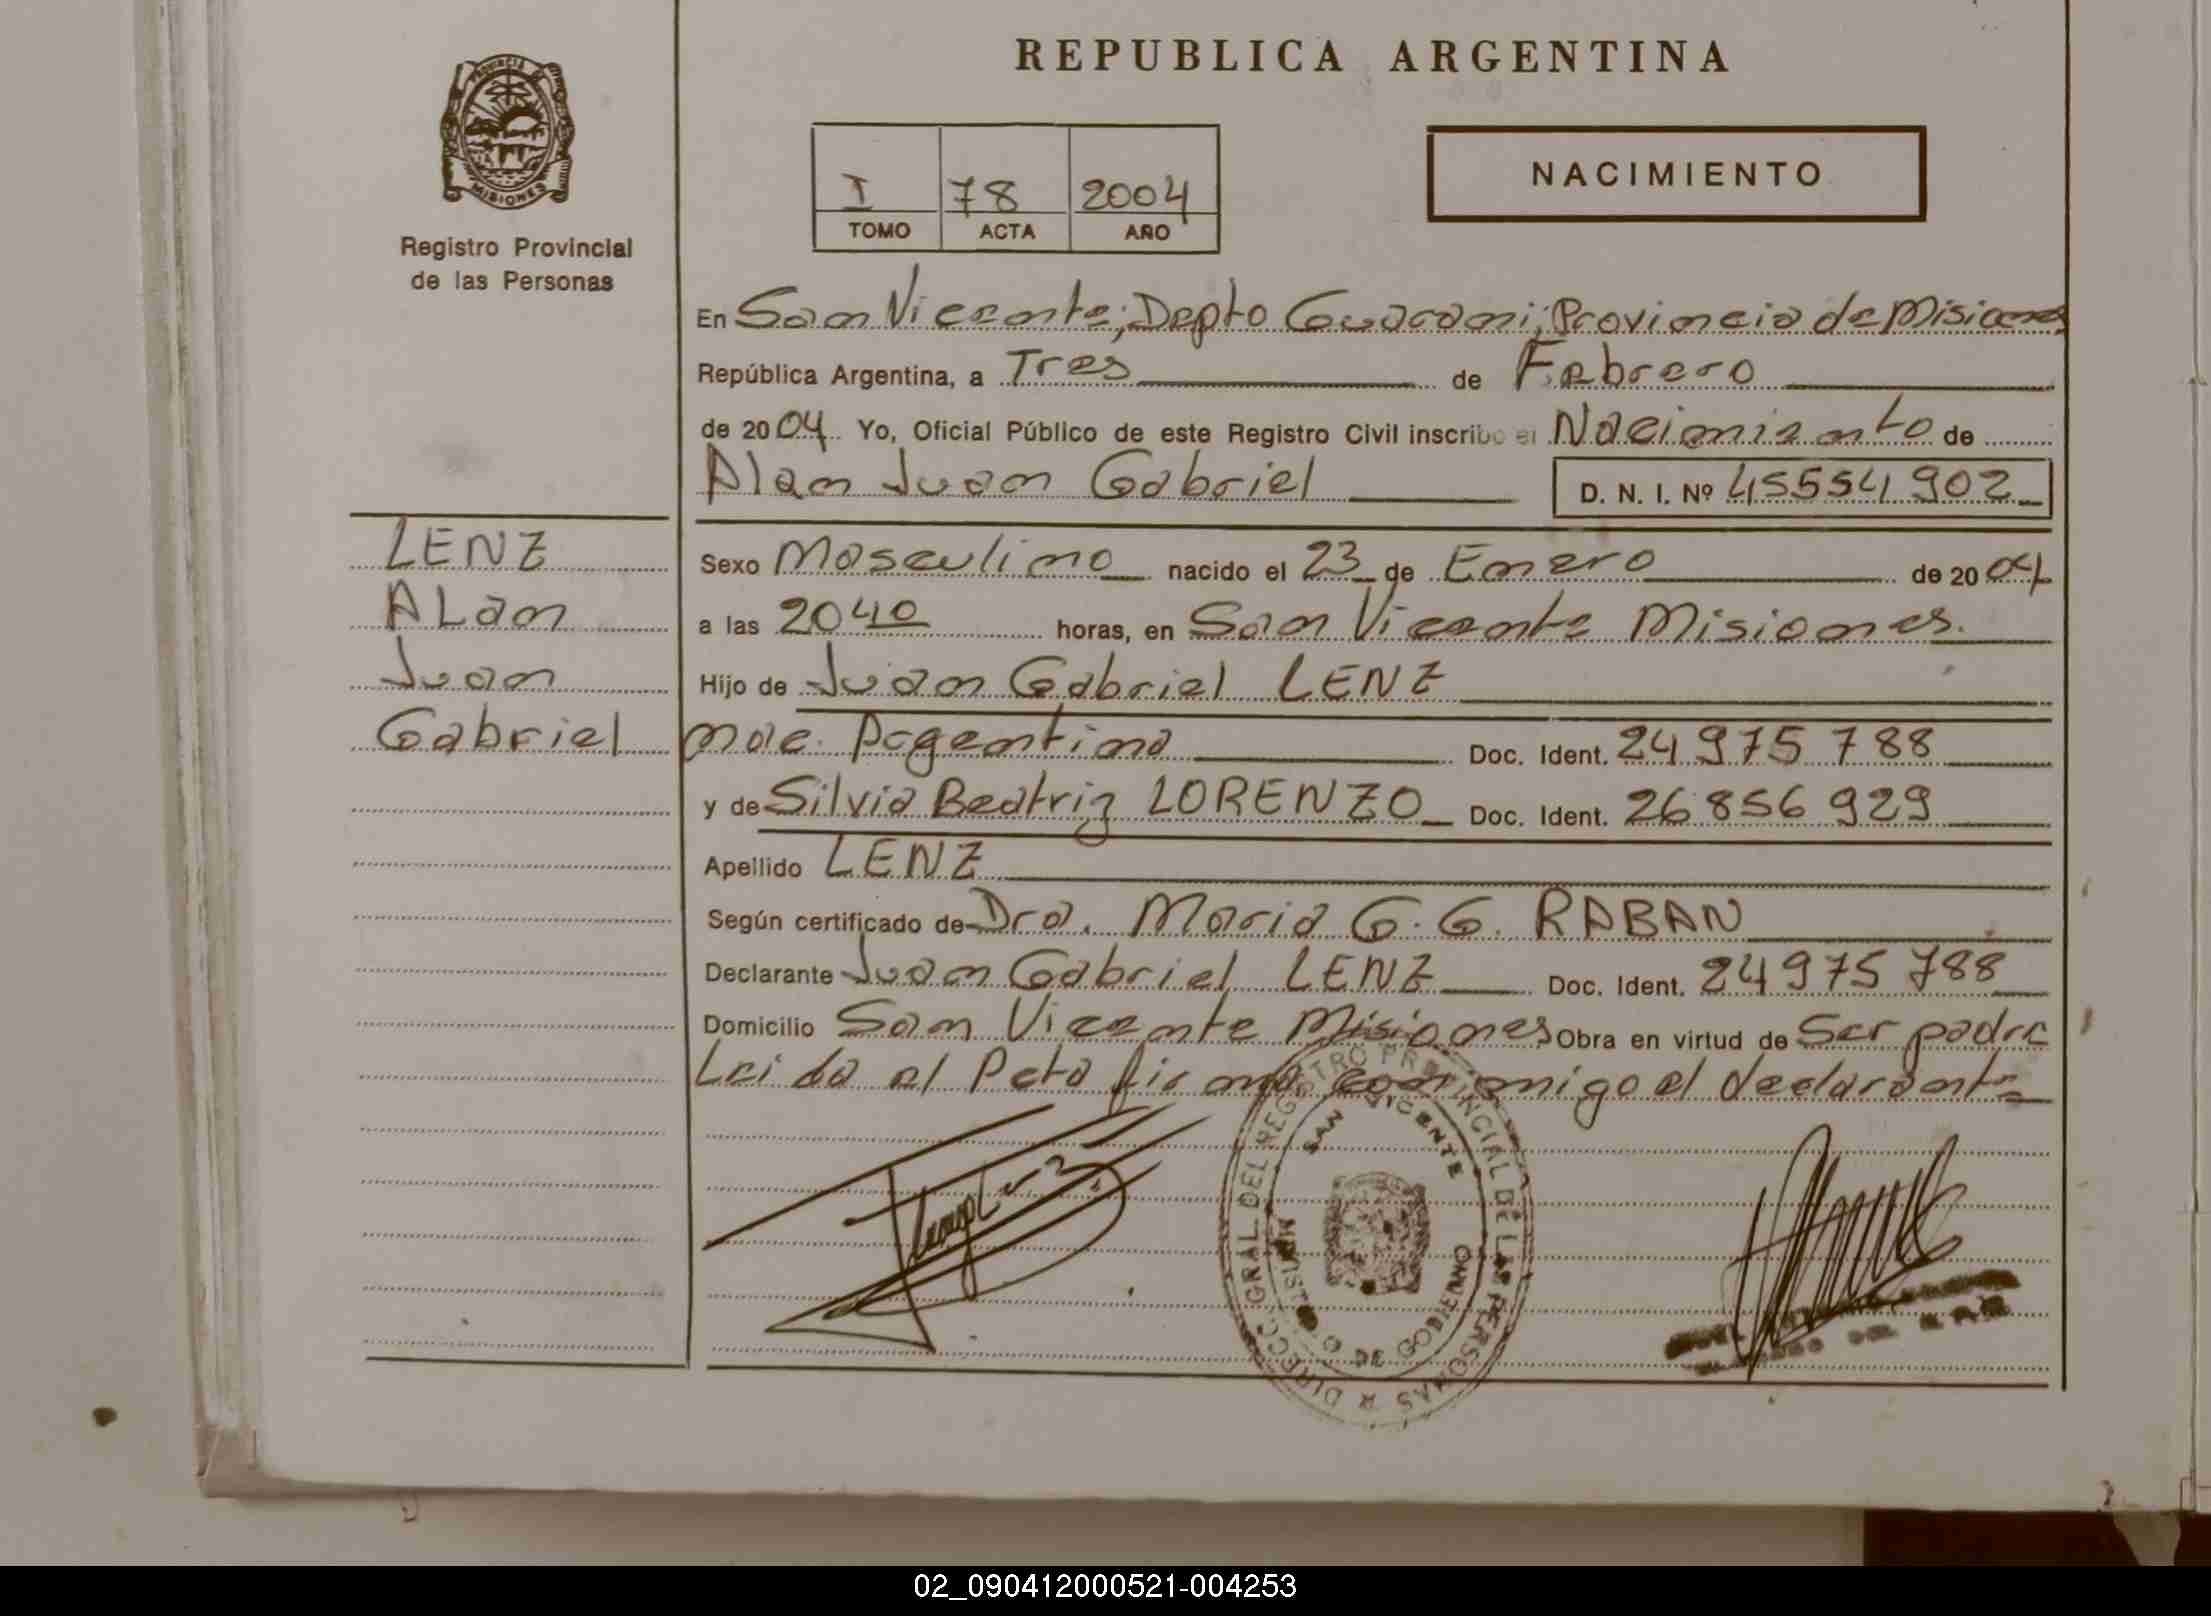 REPUBLICA ARGENTINA
PROVINCIA DE
MISIONES
Registro Provincial
de las Personas
I 78 2004
TOMO ACTA AÑO
NACIMIENTO
En San Vicente; Depto Guarani; Provincia de Misiones
República Argentina, a Tres de Febrero
de 2004 Yo, Oficial Público de este Registro Civil inscribo el Nacimiento de
Alan Juan Gabriel D. N. I. Nº 45554902
LENZ
ALan
Juan
Gabriel
Sexo Masculino nacido el 23 de Enero de 2004
a las 2040 horas, en San Vicente Misiones.
Hijo de Juan Gabriel LENZ
nac. Argentina Doc. Ident. 24975788
y de Silvia Beatriz LORENZO Doc. Ident. 26856929
Apellido LENZ
Según certificado de Dra. Maria G. G. RABAN
Declarante Juan Gabriel LENZ Doc. Ident. 24975788
Domicilio San Vicente Misiones Obra en virtud de Ser padre
Leida el Acta firma conmigo el declarante
DIRECC. GRAL DEL REGISTRO PROVINCIAL DE LAS PERSONAS
SAN VICENTE
MINISTERIO DE GOBIERNO
02_090412000521-004253